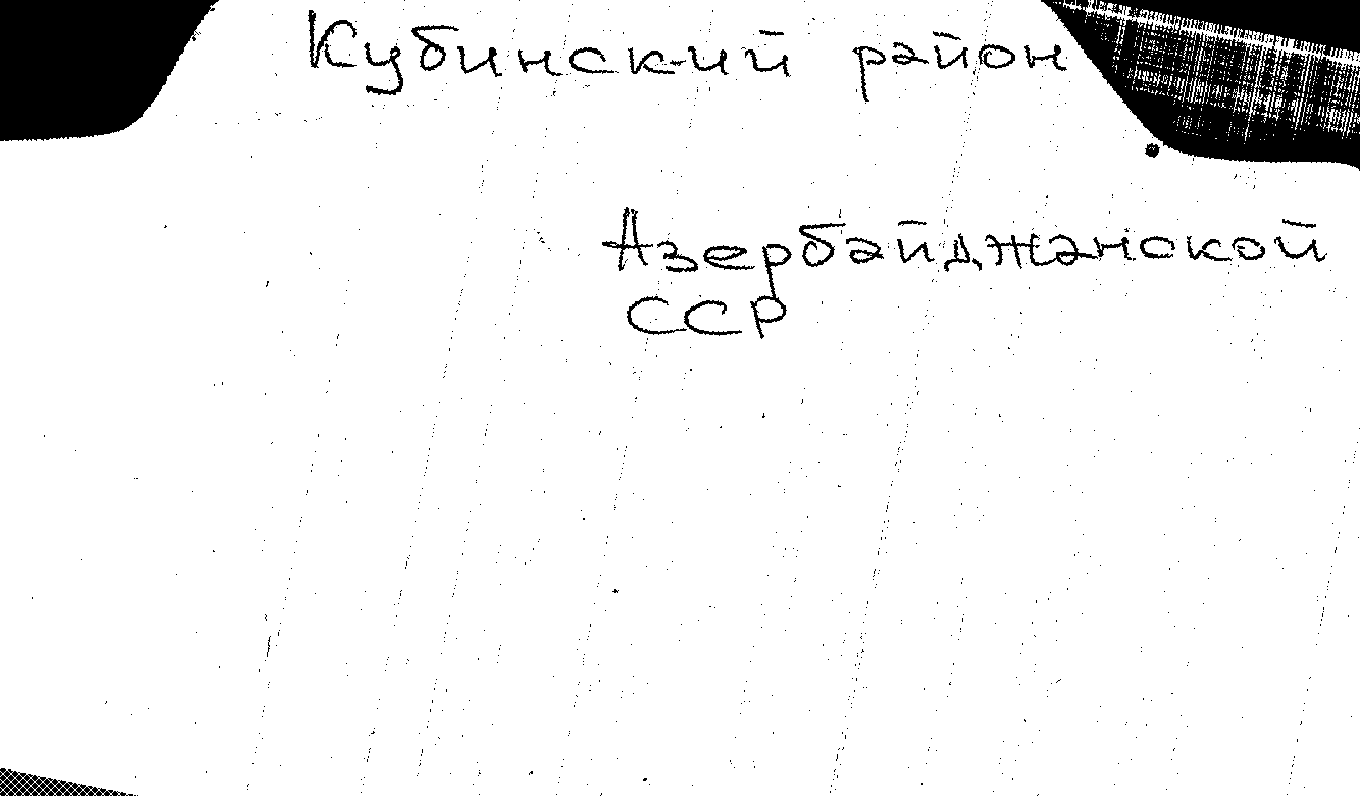 Кубинский район
Азербайджанской
ССР